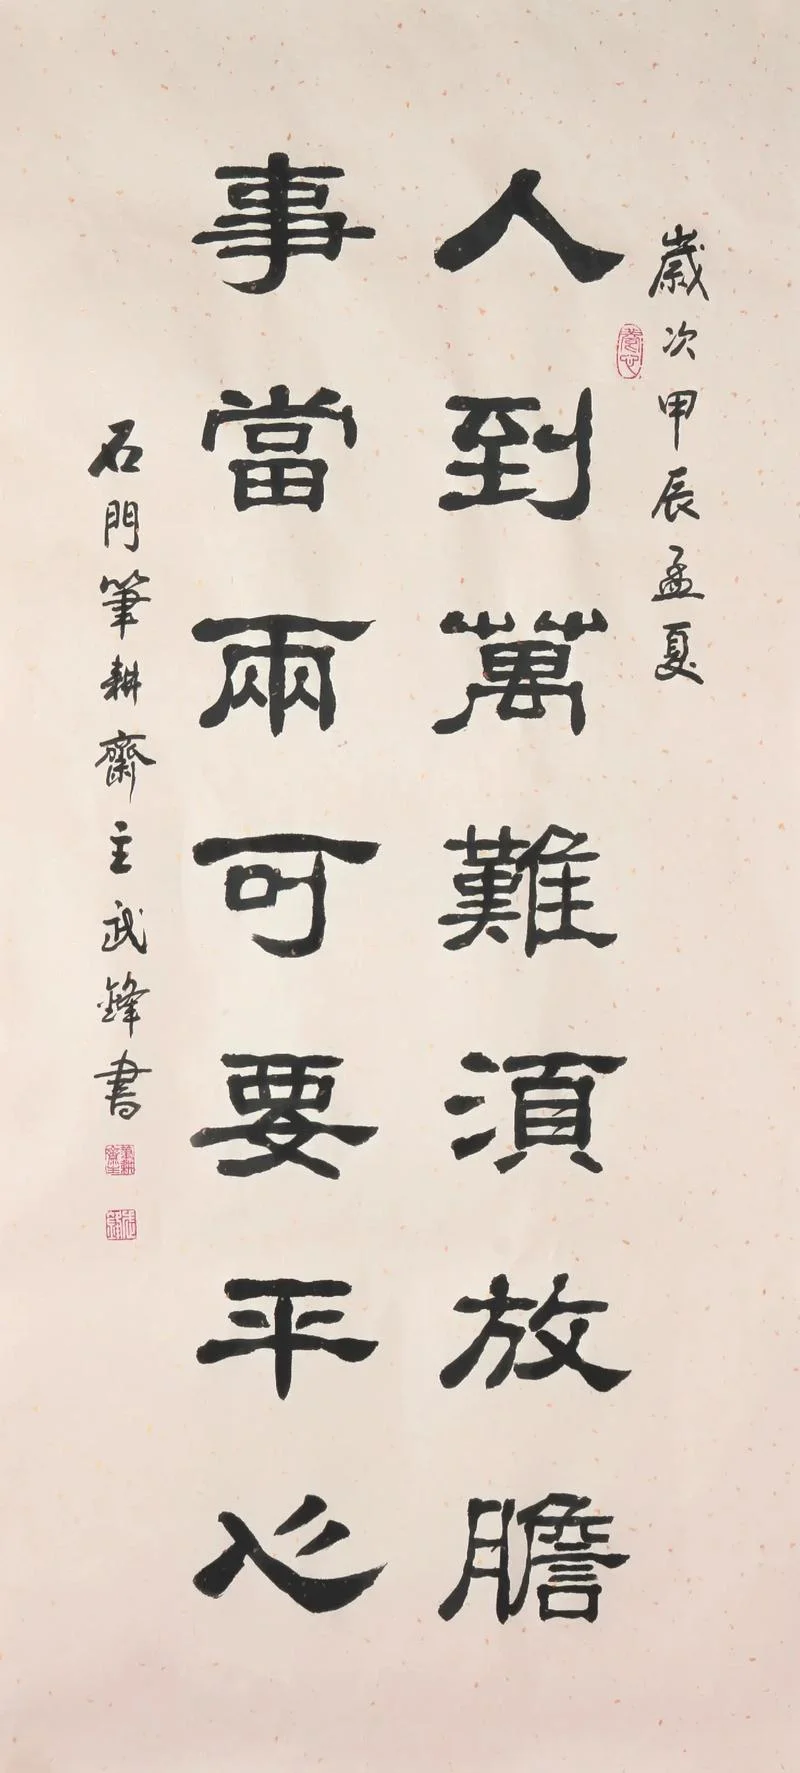 歲次甲辰孟夏
人到萬難須放膽
事當兩可要平心
石門筆耕齋主武鋒書